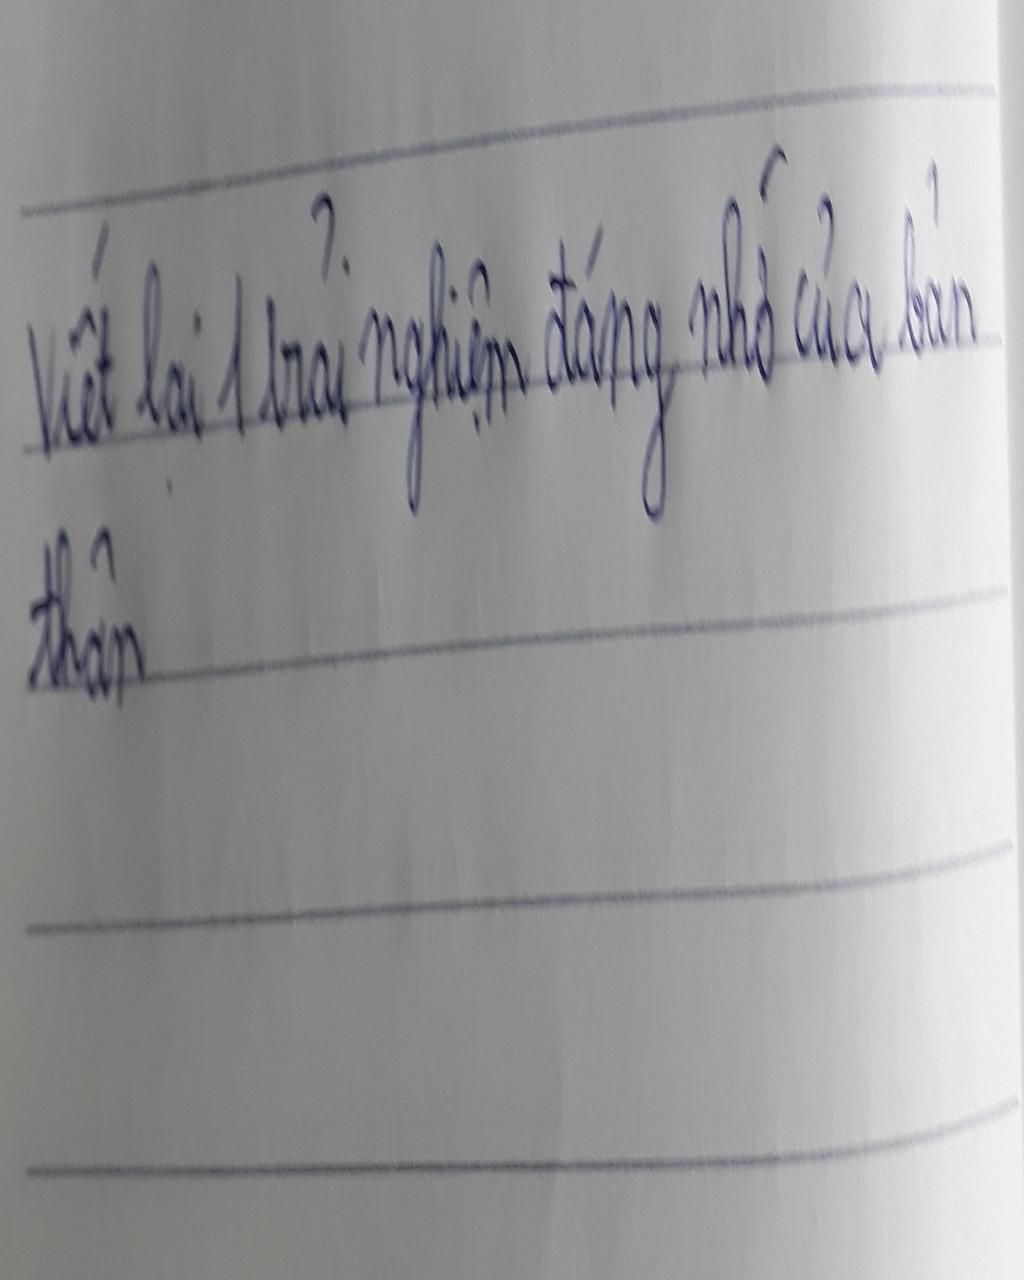 Viết lại 1 trải nghiệm đáng nhớ của bản
thân